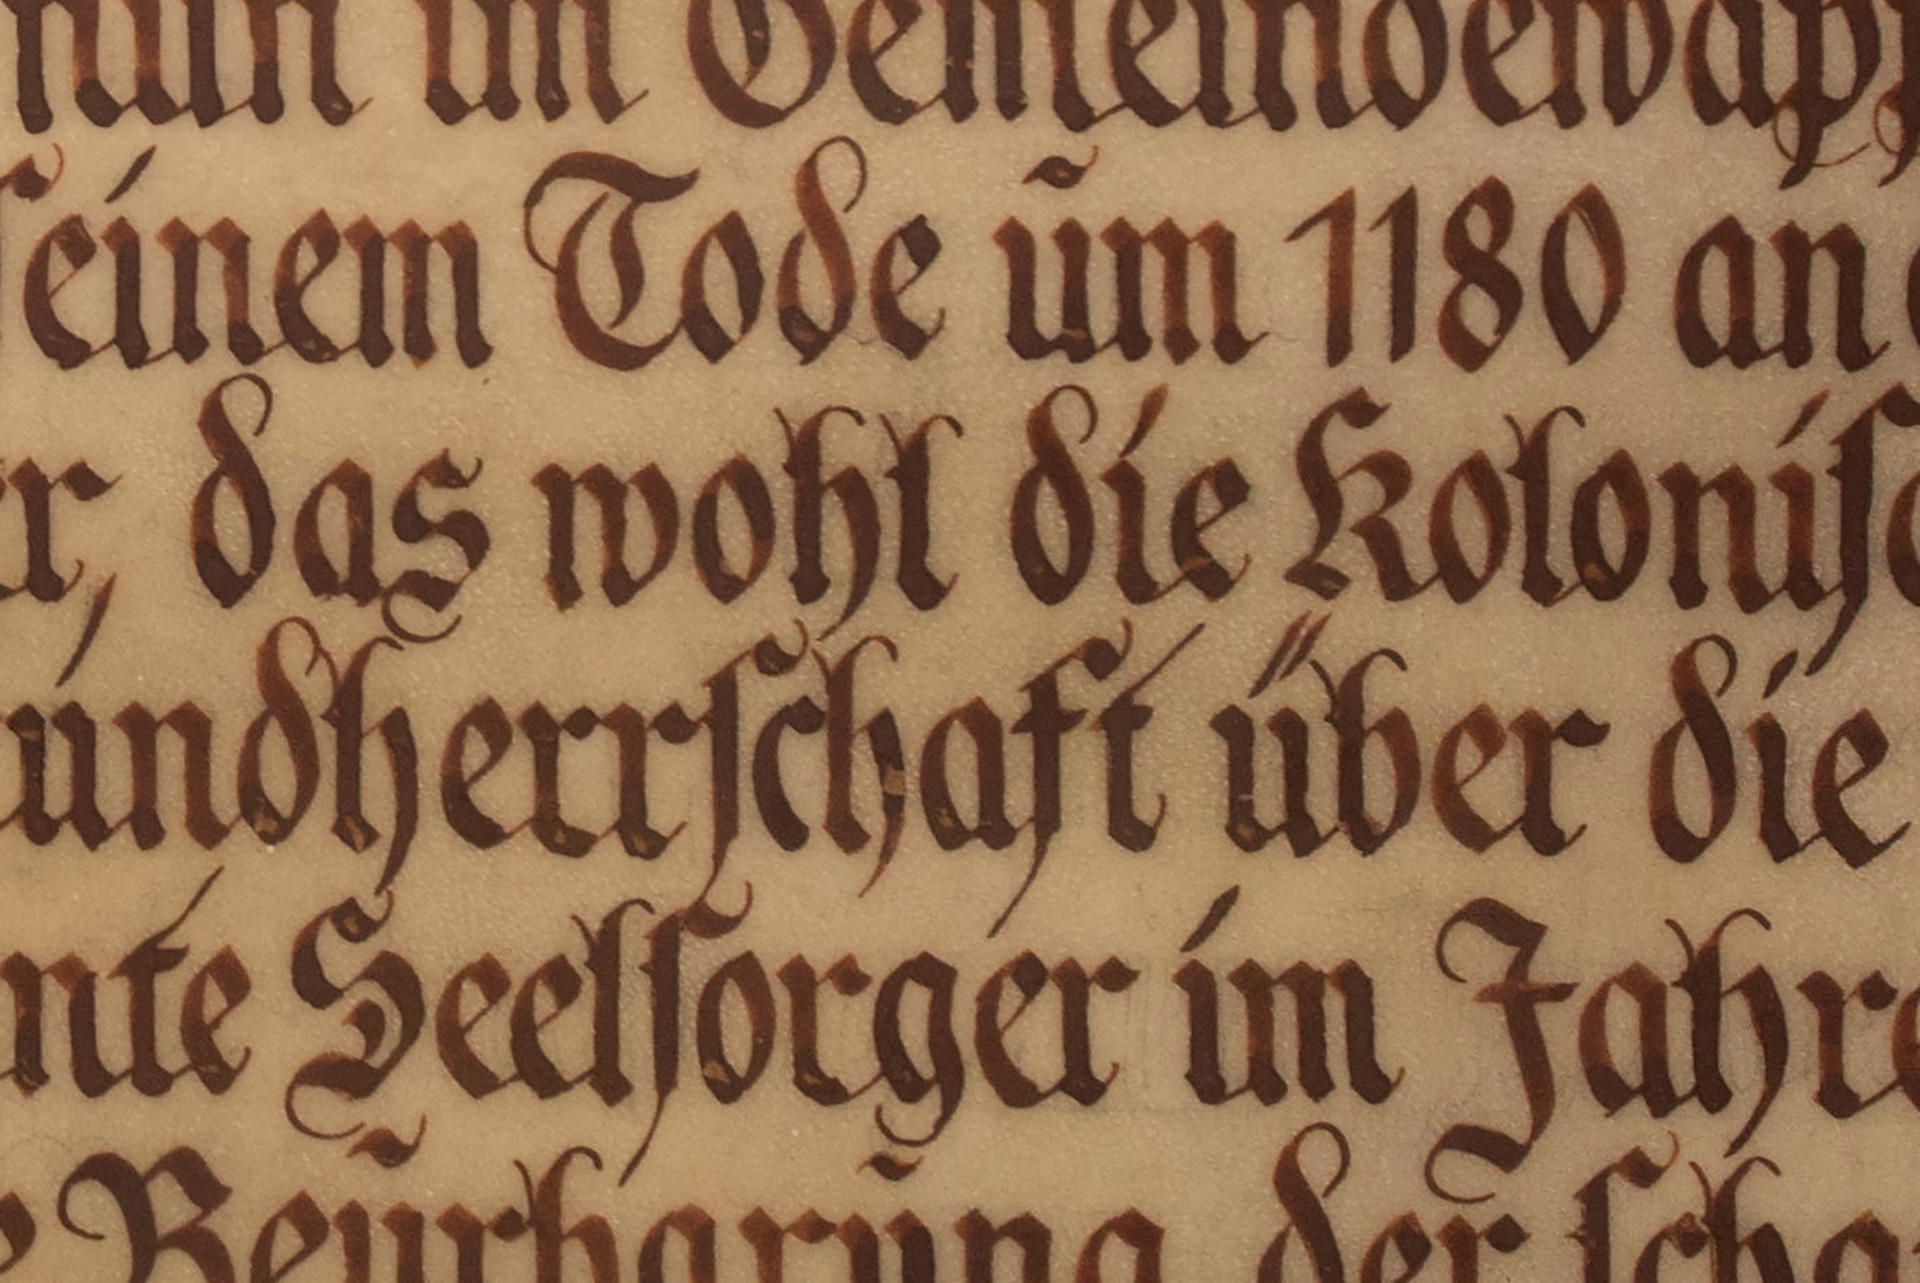 nun im Gemeindewapp
seinem Tode um 1180 an
er, das wohl die Kolonis
undherrschaft über die
nte Seelsorger im Jahre
e Beurbarung, der scha